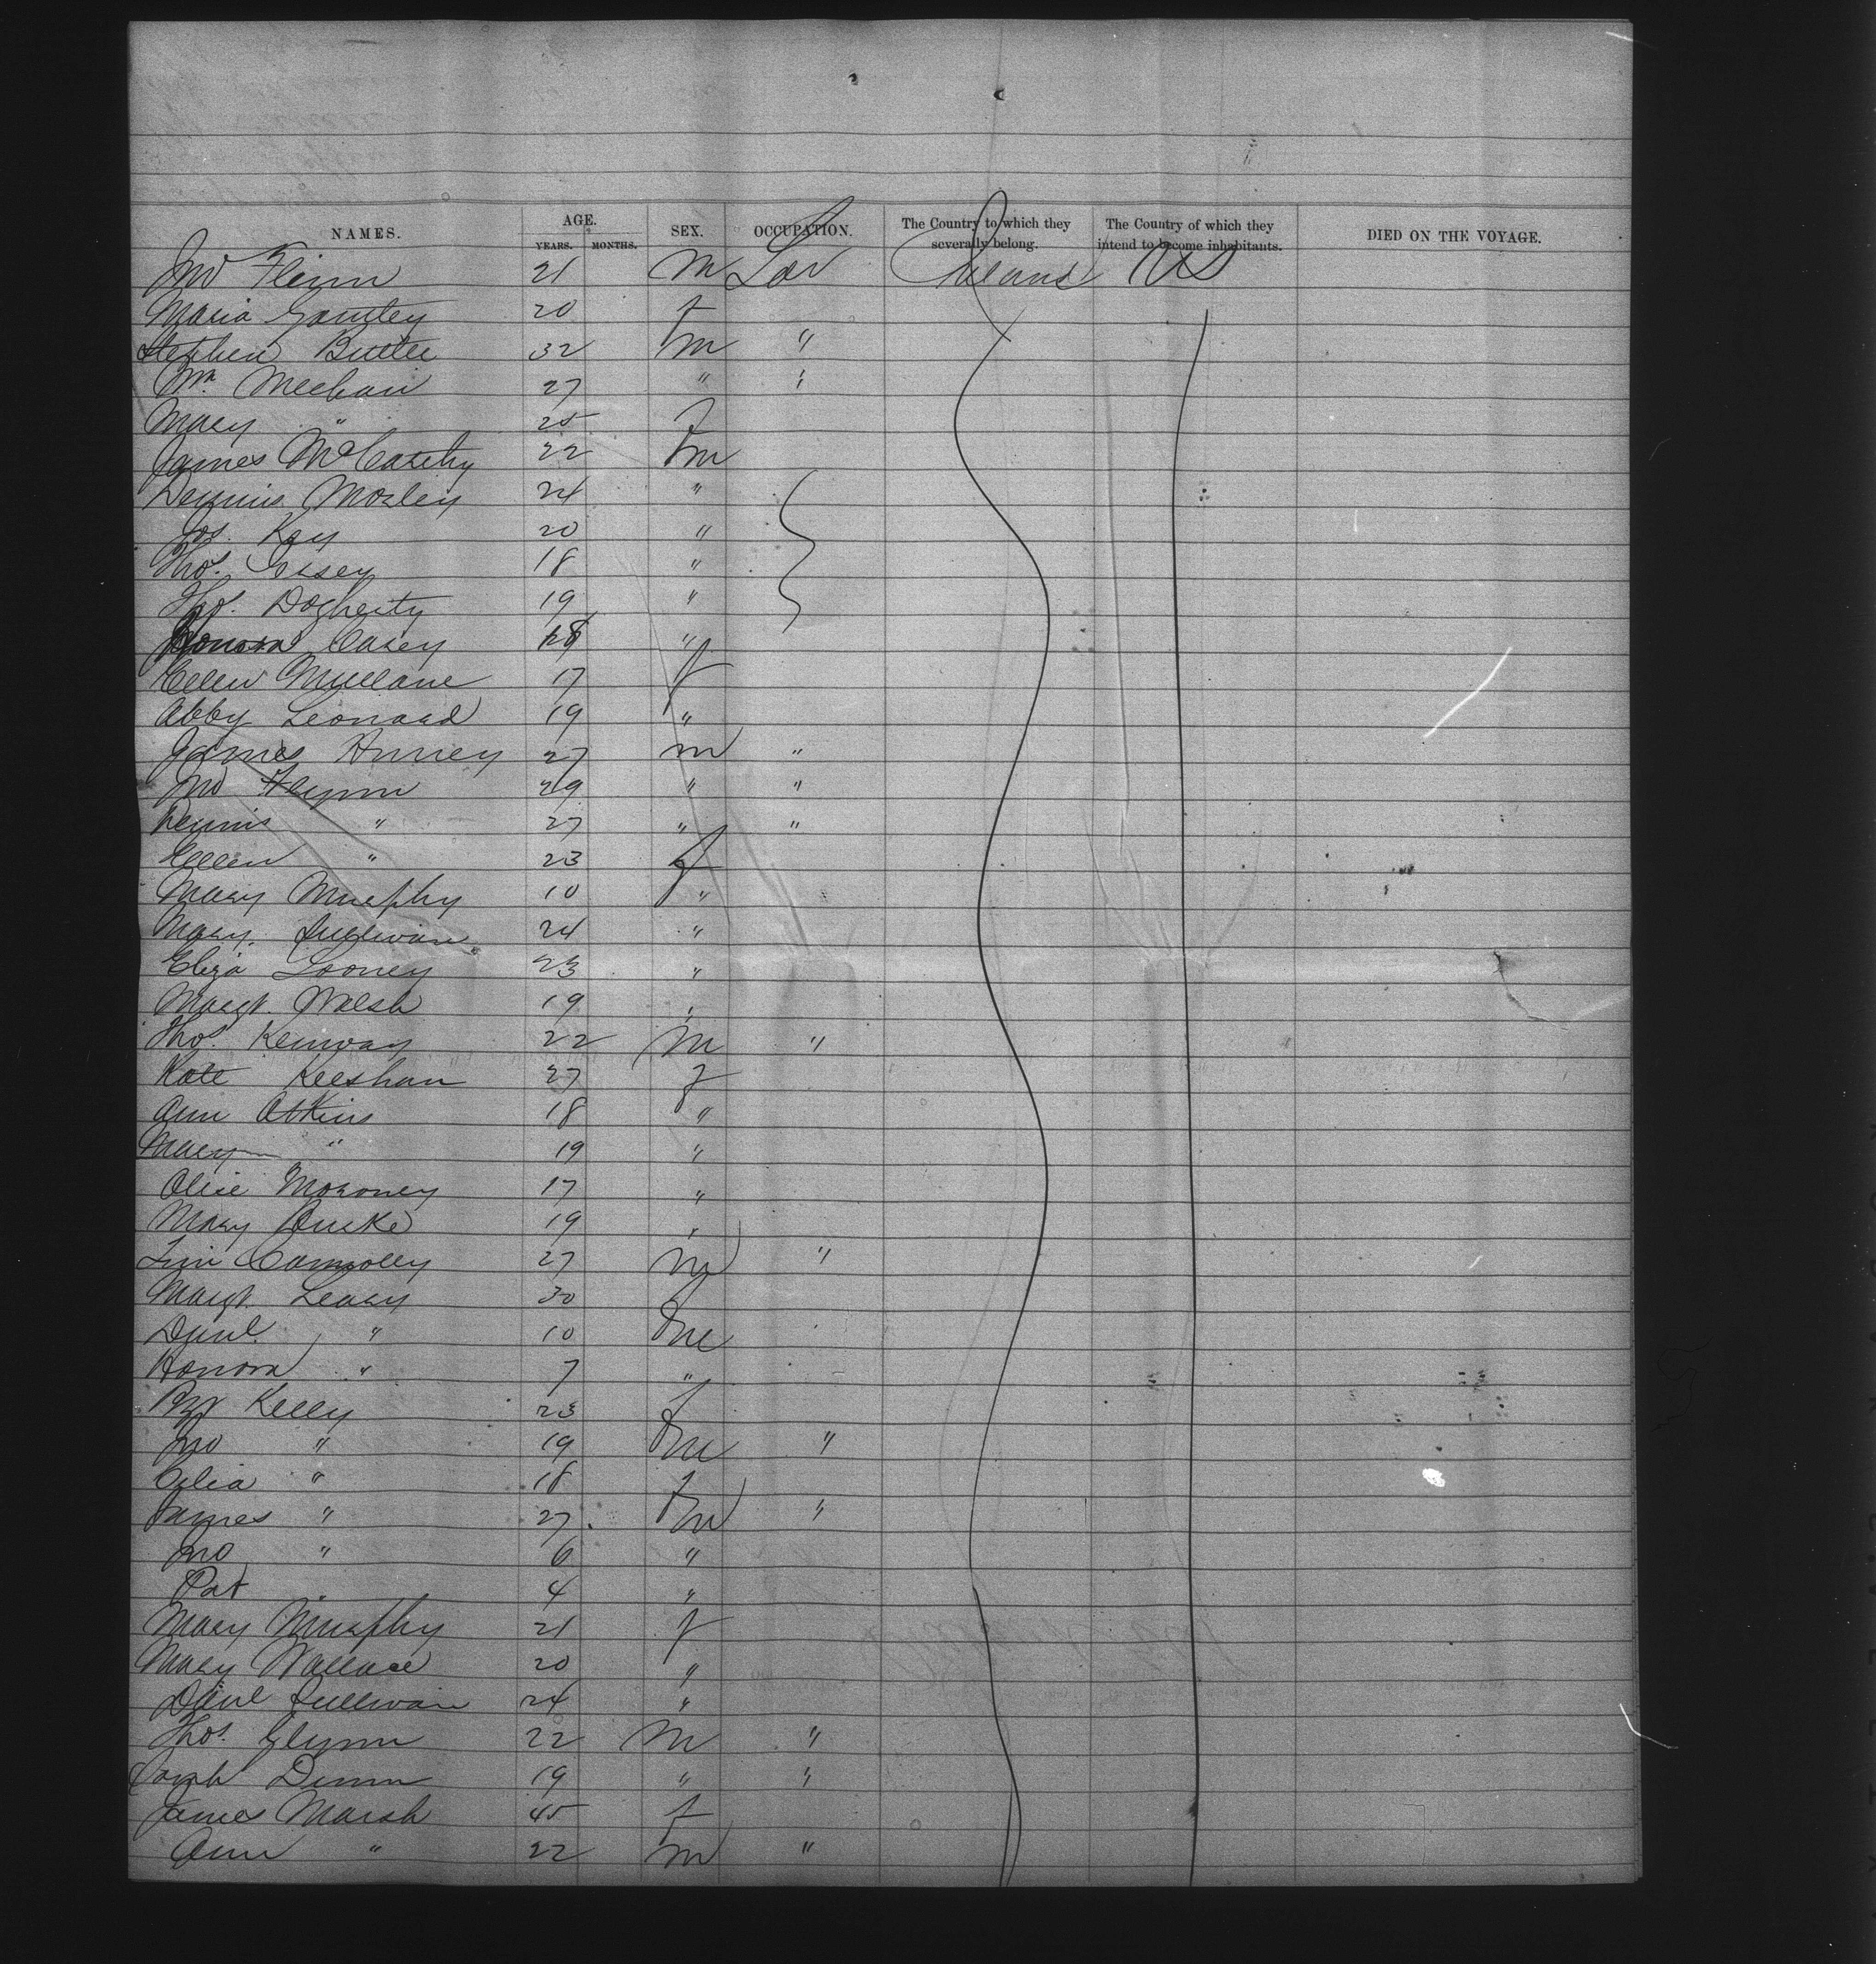 NAMES. AGE. YEARS. MONTHS. SEX. OCCUPATION. The Country to which they severally belong. The Country of which they intend to become inhabitants. DIED ON THE VOYAGE.
Jno Flinn 21 M Lar Ireland US
Maria 20 f
Stephen Butler 32 m "
Wm. Meehan 27 " "
Mary " 25 f
James McCarthy 22 m
Dennis Morley 24 "
Jos. Kay 20 "
Thos. Casey 18 "
Dogherty 19 "
Honora Casey 18 "
Ellen Mullane 17 f
Abby Leonard 19 "
James Hurley 27 m "
Jno Flynn 29 " "
Dennis " 27 " "
Ellen " 23 f
Mary Murphy 10 "
Mary Sullivan 24 "
Eliza Looney 23 "
Margt. Walsh 19 "
Thos. Kenway 22 M "
Kate Keeshan 27 f
Ann Atkins 18 "
Mary " 19 "
Alice Moroney 17 "
Mary Burke 19 "
Tim Connolly 27 m "
Margt. Leary 30 f
Danl. " 10 m
Honora " 7 "
Kelly 23 f
Jno " 19 m "
Celia " 18 f
James " 27 m "
Jno " 6 "
Pat " 4 "
Mary Murphy 21 f
Mary Wallace 20 "
Danl Sullivan 24 "
Thos. Glynn 22 M "
Dunn 19 " "
James Marsh 45 f
Ann " 22 m "